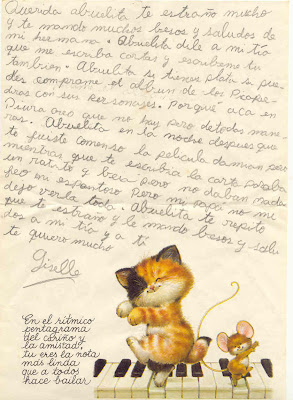 Querida abuelita te estraño mucho
y te mando muchos besos y saludos de
mi hermana. Abuelita dile a mi tía
que me escriba cartas y escribeme tu
tambien. Abuelita si tienes plata si pue-
des comprame el album de los Picape-
dras con sus personajes. Porqué aca en
Piura creo que no hay pero detodas mane-
ras. Abuelita en la noche despues que
te fuiste comenso la pelicula damian pero
mientras que te escribia la carta pasaba
un ratito y veia pero no daban nada
feo ni espantoso pero mi papá no me
dejo verla toda. Abuelita te repito
que te estraño y le mando besos y salu
dos a mi tía y a ti
te quiero mucho
Giselle
En el rítmico
pentagrama
del cariño y
la amistad,
tu eres la nota
más linda
que a todos
hace bailar